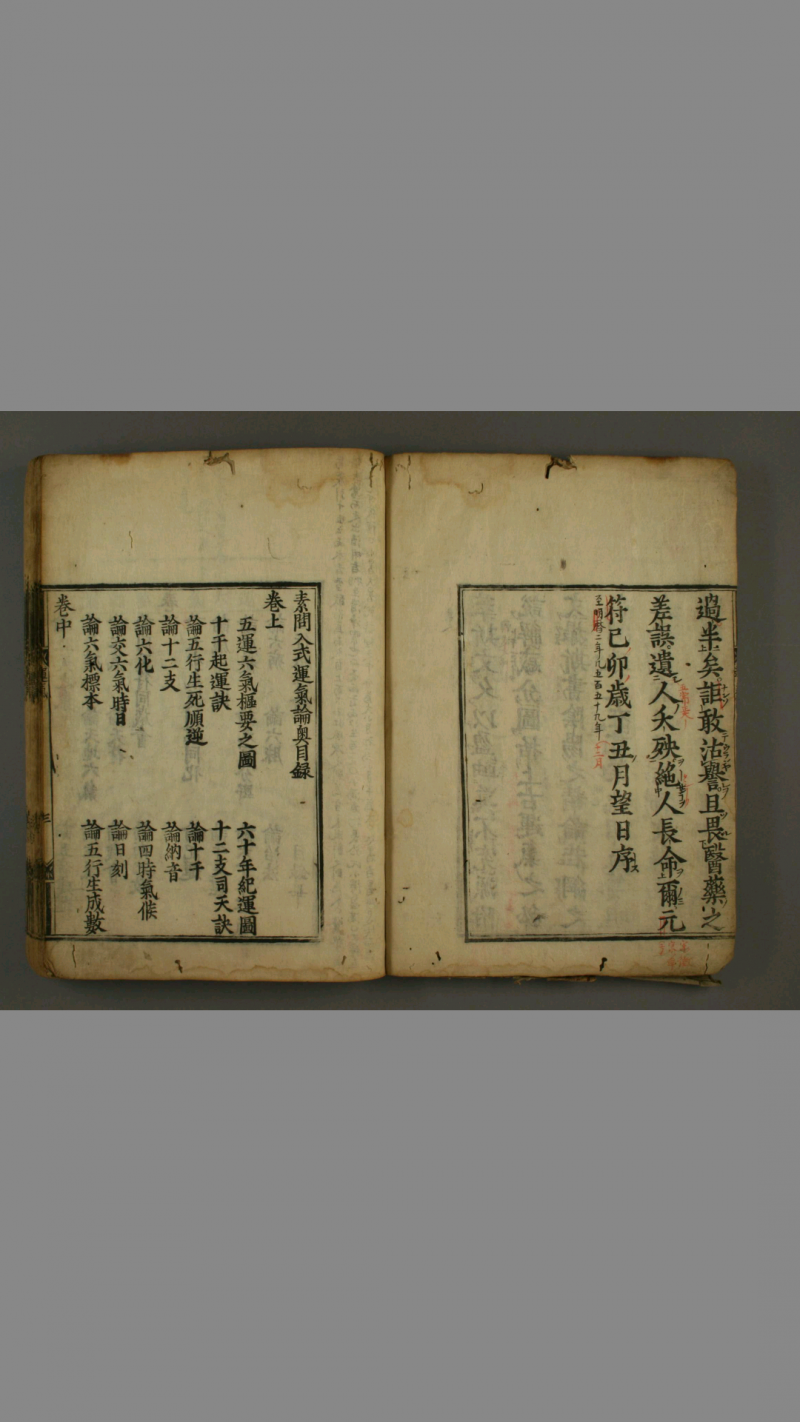 過半矣詎敢沽譽且畏醫藥之
差誤遺人夭殃絕人長命爾元
符己卯歲丁丑月望日序
素問入式運氣論奧目錄
卷上
五運六氣樞要之圖 六十年紀運圖
十干起運訣 十二支司天訣
論五行生死順逆 論十干
論十二支 論納音
論六化 論四時氣候
論交六氣時日 論日刻
論六氣標本 論五行生成數
卷中